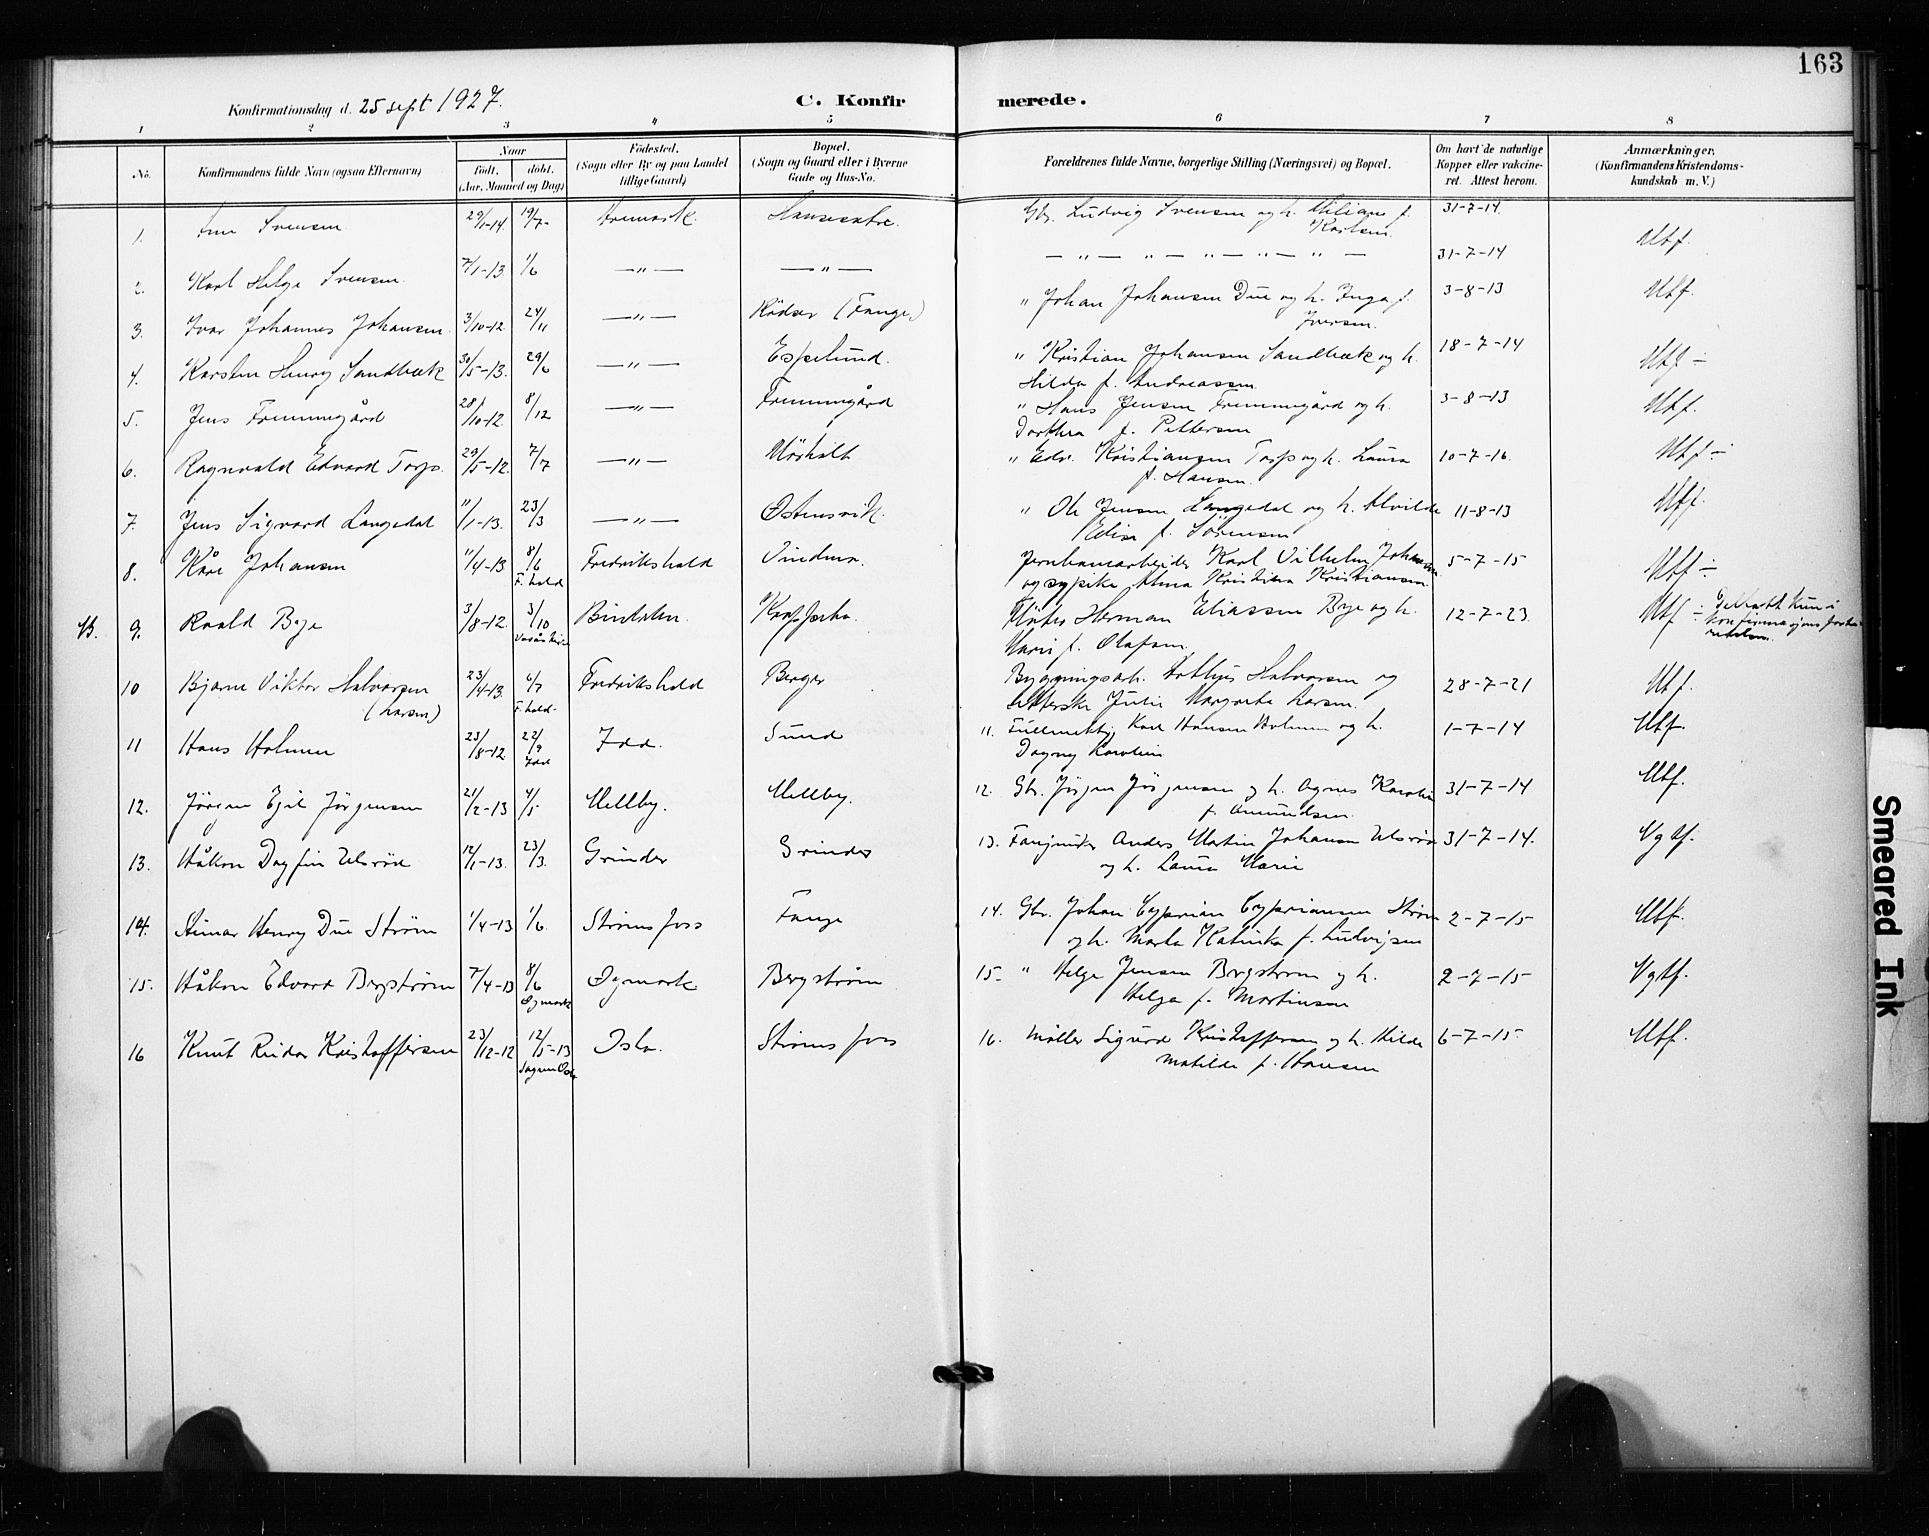 163
Konfirmationsdag d. 25 sept 1927.
C. Konfirmerede.
1 2 3 4 5 6 7 8
No.
Konfirmandens fulde Navn (ogsaa Efternavn)
Naar
født. døbt.
(Aar, Maaned og Dag)
Fødested.
(Sogn eller By og paa Landet
tillige Gaard)
Bopæl.
(Sogn og Gaard eller i Byerne
Gade og Hus-No.
Forældrenes fulde Navne, borgerlige Stilling (Næringsvei) og Bopæl.
Om havt de naturlige
Kopper eller vakcine-
ret. Attest herom.
Anmærkninger,
(Konfirmandens Kristendoms-
kundskab m. V.)
1. Svensen 29/1-14 19/7 Aremark Gbr. Ludvig Svensen og h. f. Karlsen 31-7-14 Mtf.
2. Karl Helge Svensen 7/1-13 1/6 —"— —"— — " — " — " — " — " — 31-7-14 Mtf.
3. Ivar Johannes Johansen 3/10-12 24/11 —"— Kødser (Fange) " Johan Johansen Due og h. Inga f. Iversen 3-8-13
4. Karsten Henry Sandbæk 30/5-13. 29/6 —"— Espelund. " Kristian Johansen Sandbæk og h.
Hilda f. Andreassen 18-7-14 Mtf –
5. Jens Fremmegård 28/10-12. 8/12 —"— Fremmegård " Hans Jensen Fremmegård og h.
Dorthea f. Pettersen 3-8-13 Mtf.
6. Ragnvald Edvard Torp. 29/5-12. 7/7 —"— Mørholt " Edv. Kristiansen Torp og h. Laura
f. Hansen. 10-7-16. Mtf ÷
7. Jens Sigvard Langedal 11/1-13. 23/3 —"— Østensvik. " Ole Jensen Langedal og h. Alvilde
Elise f. Sørensen 11-8-13 Mtf.
8. Kåre Johansen 11/4-13 8/6 F.hald Fredrikshald Jernbanearbeider Karl Vilhelm Johansen
og sypike Alma Kristiansen 5-7-15 Mtf ÷
9. Roald Bye 3/8-12. 3/10 Bindalen. Fløter Herman Eliassen Bye og h.
Marie f. Olafsen. 12-7-23. Mtf ÷ Deltatt kun i
konfirmasjonsforbe-
redelsen.
10 Bjarne Viktor Halvorsen
(Larsen) 23/4-13. 6/7 F.hald. Fredrikshald Berger Bygningsarb. Halvorsen og
Julie Margrete Larsen. 28-7-21 Mtf.
11 Hans Holmen 23/8-12 22/9 Idd Idd. Sund 11. Fuldmektig Karl Hansen Holmen og h.
Dagny Karoline 1-7-14 Mtf.
12. Jørgen Egil Jørgensen 21/2-13 4/5 Melleby. Melleby. 12. Gbr. Jørgen Jørgensen og h. Agnes Karoline
f. Amundsen. 31-7-14 Mtf.
13. Håkon Dagfin Ulsrød 12/1-13. 23/3. Grinder Grinder 13. Fanejunker Anders Martin Johansen Ulsrød
og h. Laura Marie 31-7-14. Mgtf.
14. Henry Due Strøm 1/4-13 1/6. Strømsfoss Fange 14. Gbr. Johan Cyprian Cypriansen Strøm
og h. Marta Katinka f. Ludvigsen 2-7-15 Mtf.
15. Håkon Edvard Bergstrøm 7/4-13 8/6 Øymark Øymark Bergstrøm 15. " Helge Jensen Bergstrøm og h.
Helga f. Martinsen 2-7-15 Mgtf.
16 Knut Reidar Kristoffersen 23/12-12 12/5-13 Oslo. Strømsfoss 16. Møller Sigurd Kristoffersen og h. Hilda
Matilde f. Hansen 6-7-15 Mtf.
Smeared Ink